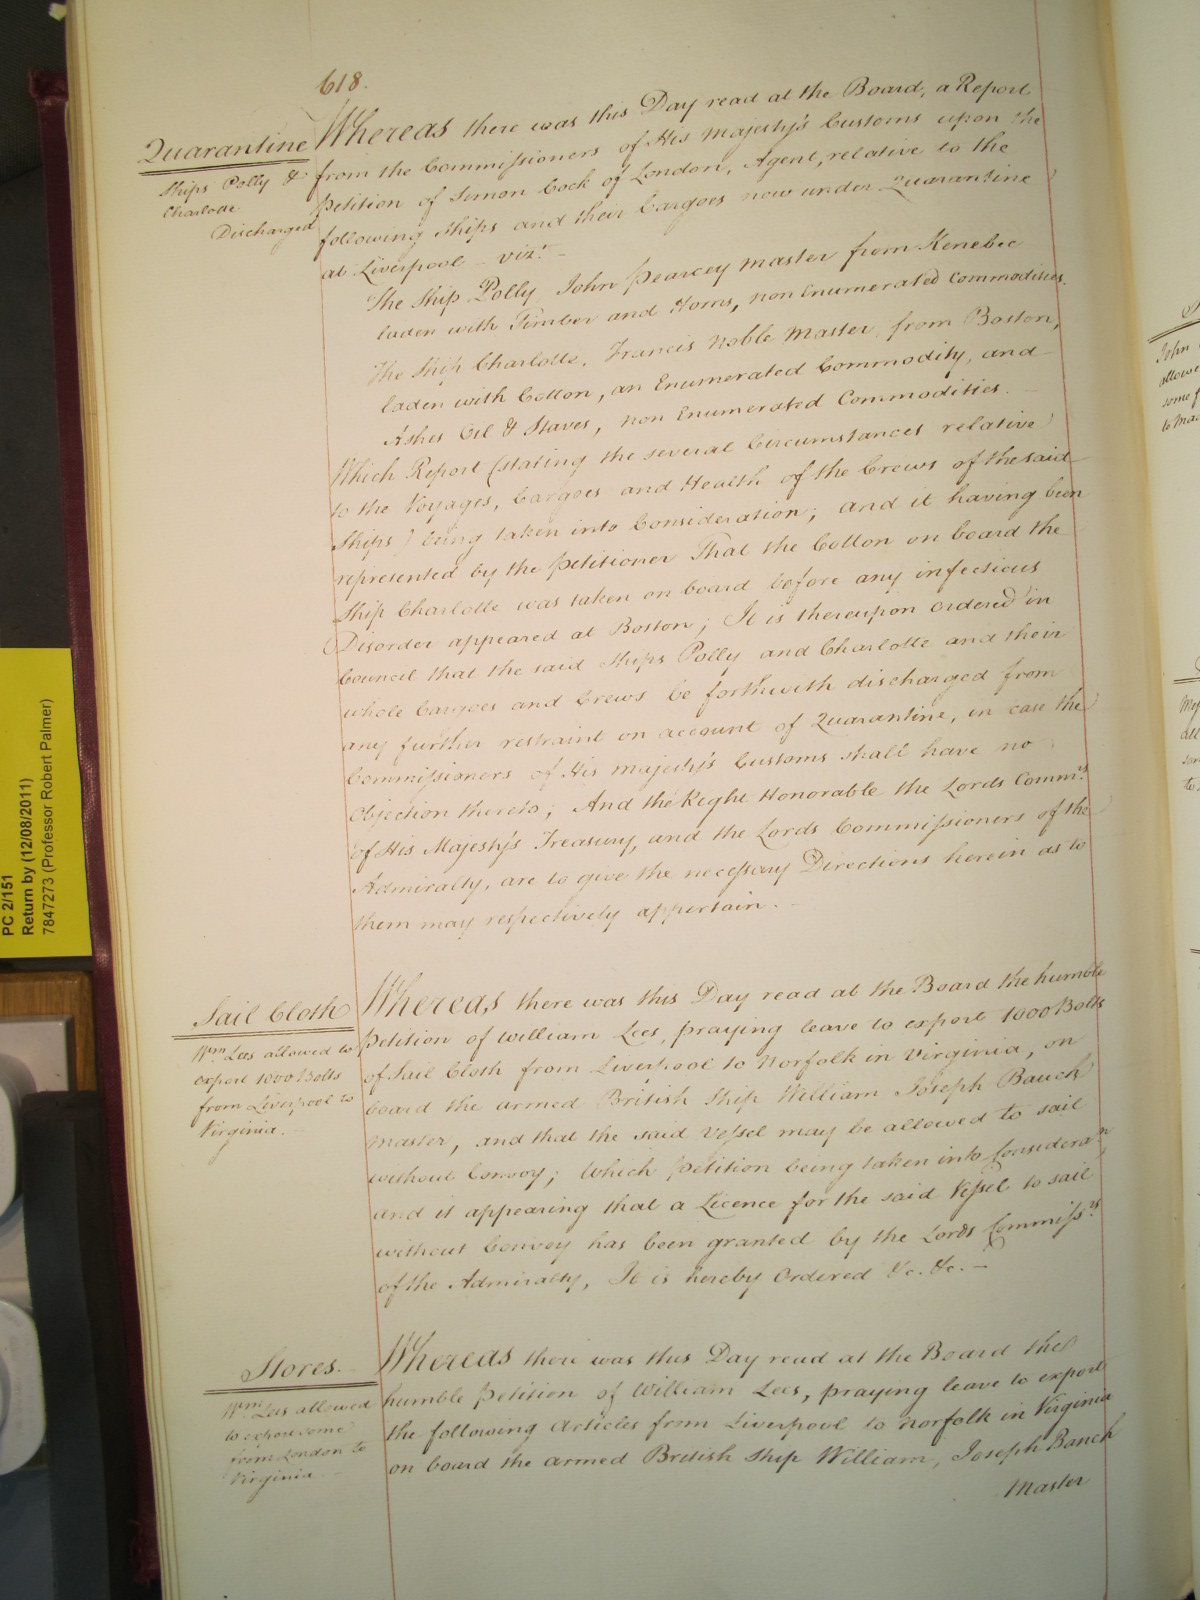 618.
Quarantine
Ships Polly &
Charlotte
Discharged
Whereas there was this Day read at the Board, a Report
from the Commissioners of His Majesty's Customs upon the
Petition of Simon Cock of London, Agent, relative to the
following Ships and their Cargoes now under Quarantine
at Liverpool - vizt. -
The Ship Polly John Pearcey Master from Kenebec
laden with Timber and Horns, non Enumerated Commodities.
The Ship Charlotte, Francis Noble Master, from Boston,
laden with Cotton, an Enumerated Commodity, and
Ashes Oil & Staves, non Enumerated Commodities.
Which Report (stating the several Circumstances relative
to the Voyages, Cargoes and Health of the Crews of the said
Ships) being taken into Consideration; and it having been
represented by the Petitioner That the Cotton on board the
Ship Charlotte was taken on board before any infectious
Disorder appeared at Boston; It is thereupon ordered in
Council that the said Ships Polly and Charlotte and their
whole Cargoes and Crews be forthwith discharged from
any further restraint on account of Quarantine, in case the
Commissioners of His Majesty's Customs shall have no
Objection thereto; And the Right Honorable the Lords Commrs
of His Majesty's Treasury, and the Lords Commissioners of the
Admiralty, are to give the necessary Directions herein as to
them may respectively appertain. -
Sail Cloth
Wm Lees allowed to
export 1000 Bolts
from Liverpool to
Virginia.
Whereas there was this Day read at the Board the humble
Petition of William Lees, praying leave to export 1000 Bolts
of Sail Cloth from Liverpool to Norfolk in Virginia, on
board the armed British Ship William Joseph Banck
Master, and that the said Vessel may be allowed to sail
without Convoy; Which Petition being taken into Consideran
and it appearing that a Licence for the said Vessel to sail
without Convoy has been granted by the Lords Commissrs
of the Admiralty, It is hereby Ordered &c. &c. -
Stores. -
Wm Lees allowed
to export some
from London to
Virginia -
Whereas there was this Day read at the Board the
humble Petition of William Lees, praying leave to export
the following Articles from Liverpool to Norfolk in Virginia
on board the armed British Ship William, Joseph Banck
Master
PC 2/151
Return by (12/08/2011)
7847273 (Professor Robert Palmer)
John
allowe
some
to Ma